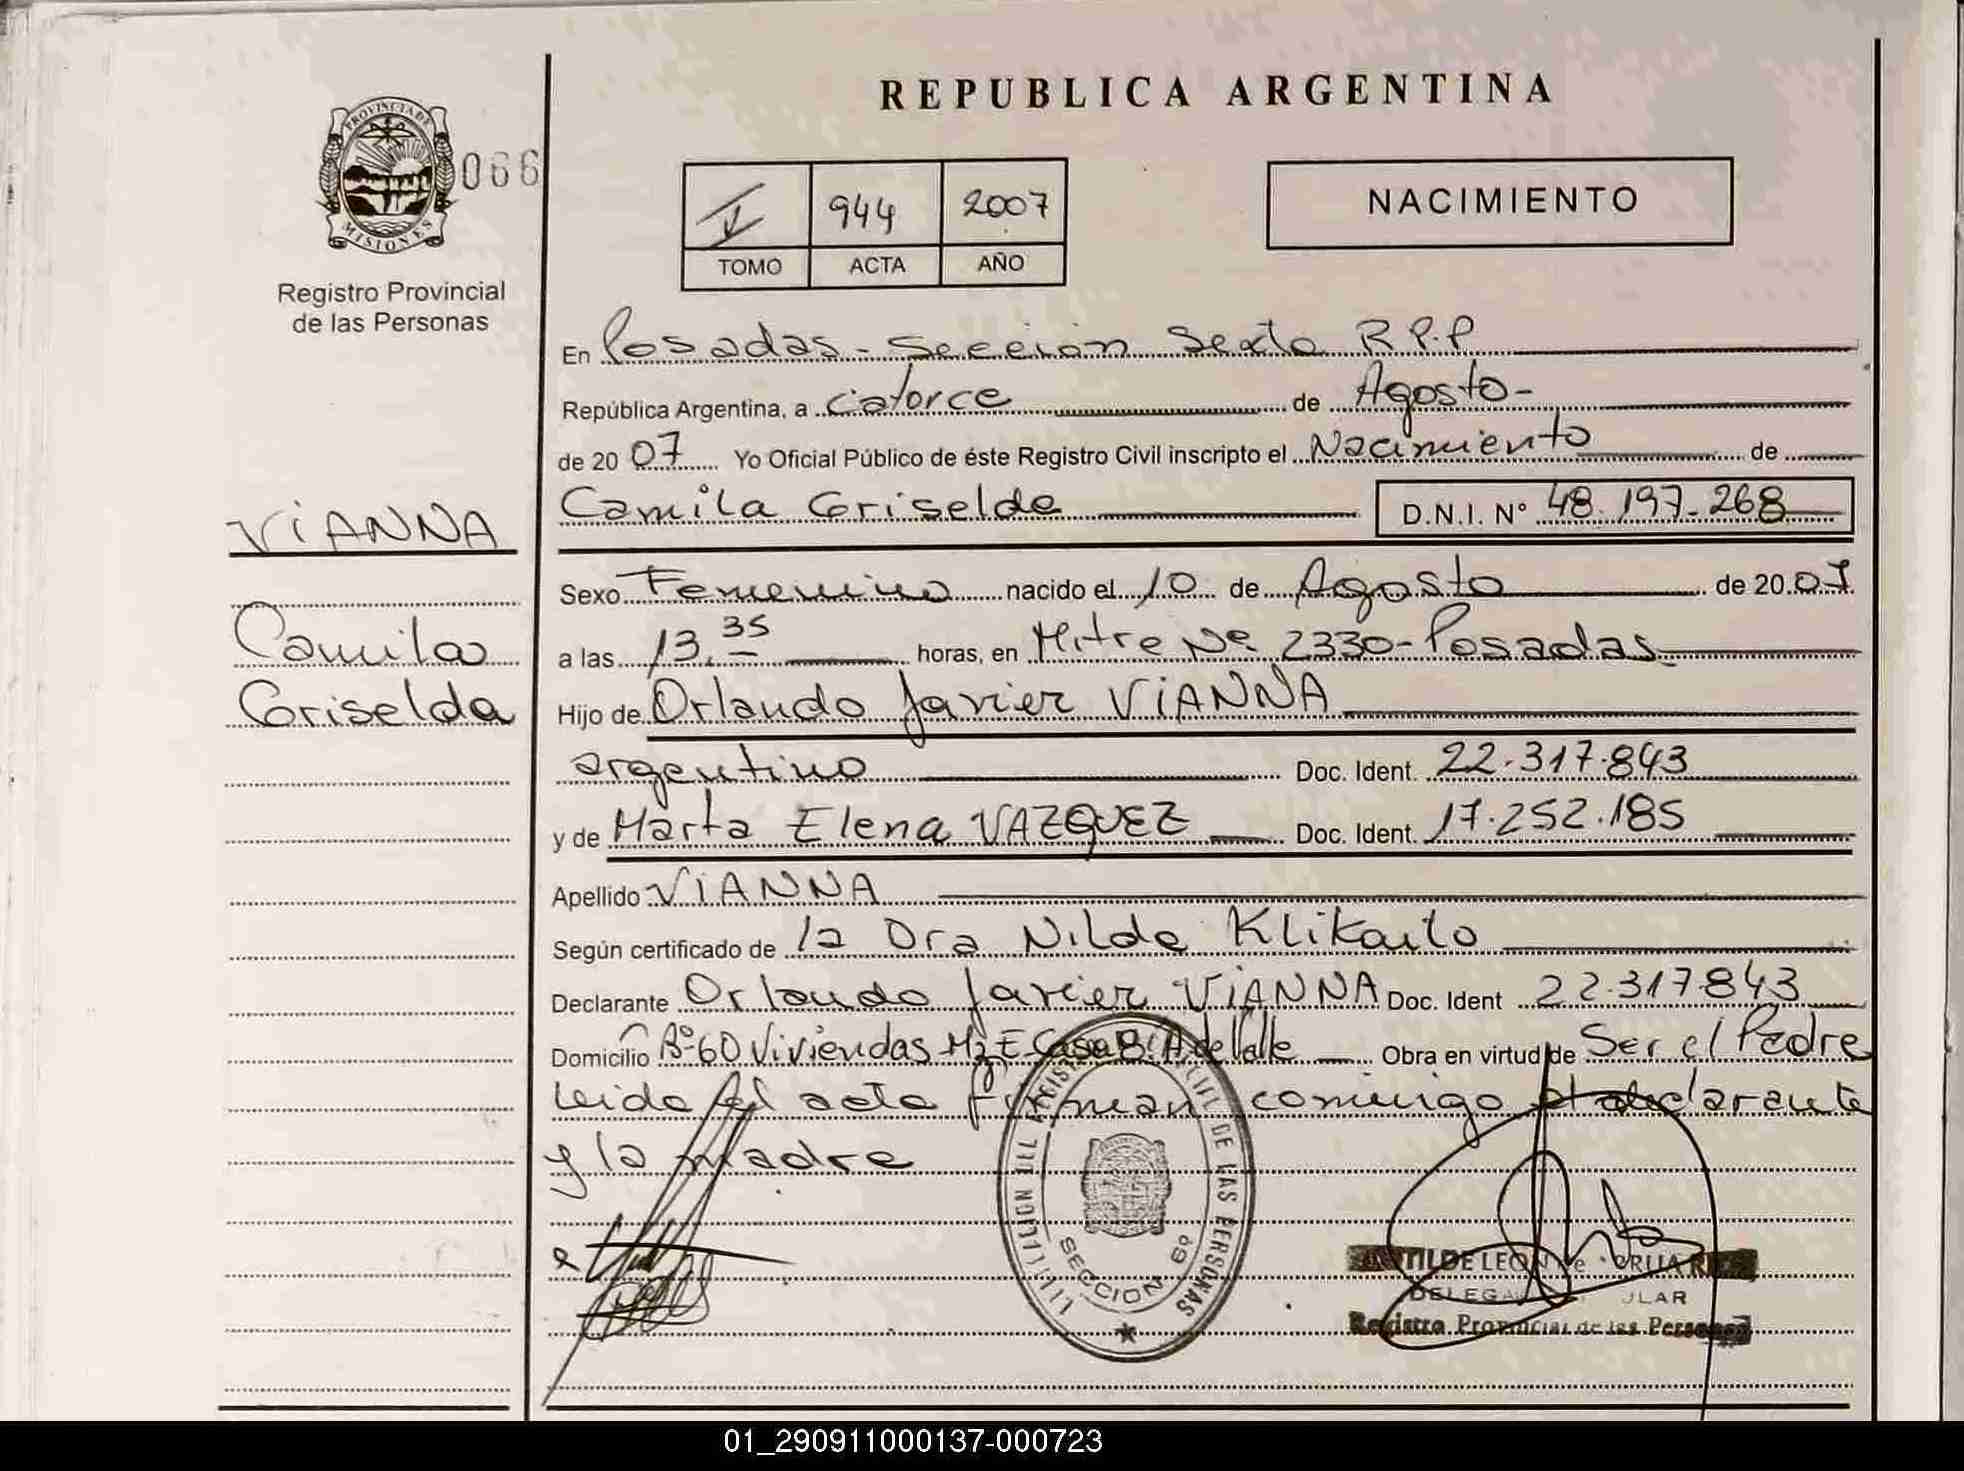 REPUBLICA ARGENTINA
PROVINCIA DE
MISIONES
066
Registro Provincial
de las Personas
944 2007
TOMO ACTA AÑO
NACIMIENTO
En Posadas - Sección Sexta R.P.P
República Argentina, a catorce de Agosto-
de 20 07 Yo Oficial Público de éste Registro Civil inscripto el Nacimiento de
Camila Griselda D.N.I. N° 48.197.268
VIANNA
Camila
Griselda
Sexo Femenino nacido el 10 de Agosto de 20 07
a las 13,35 horas, en Mitre Nº 2330-Posadas
Hijo de Orlando Javier VIANNA
argentino Doc. Ident. 22.317.843
y de Marta Elena VAZQUEZ Doc. Ident. 17.252.185
Apellido VIANNA
Según certificado de la Dra Nilda
Declarante Orlando Javier VIANNA Doc. Ident 22.317.843
Domicilio Bº 60 Viviendas Mz E Casa 8 Obra en virtud de Ser el Padre
Leida el acta firman conmigo el declarante
y la madre
CIVIL DE LAS PERSONAS
SECCION 6º
DELEGA
Registro Provincial de las Personas
01_290911000137-000723